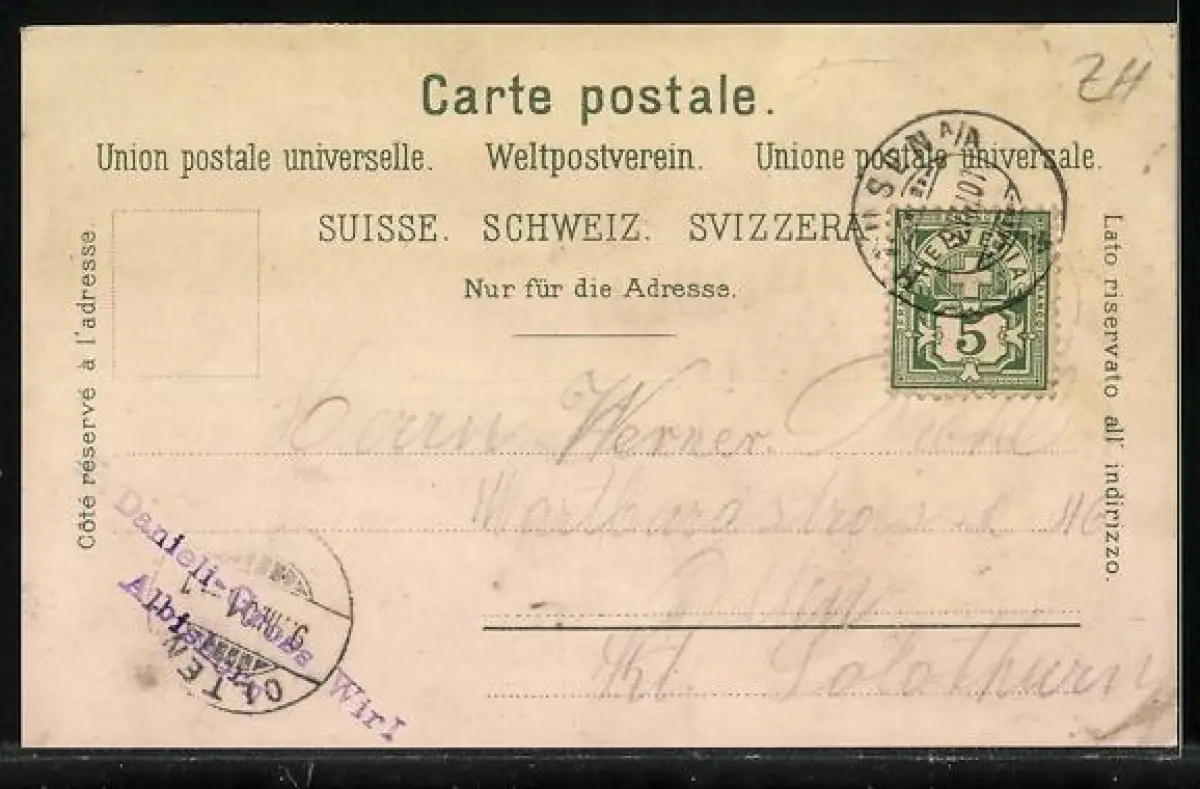 ZH
Carte postale.
Union postale universelle. Weltpostverein. Unione postale universale.
SUISSE. SCHWEIZ. SVIZZERA
Nur für die Adresse.
Côté réservé à l'adresse.
Lato riservato all' indirizzo.
HELVETIA
FRANCO
5
Herrn Werner
Olten
Kt. Solothurn
Danieli- Wirt
OLTEN